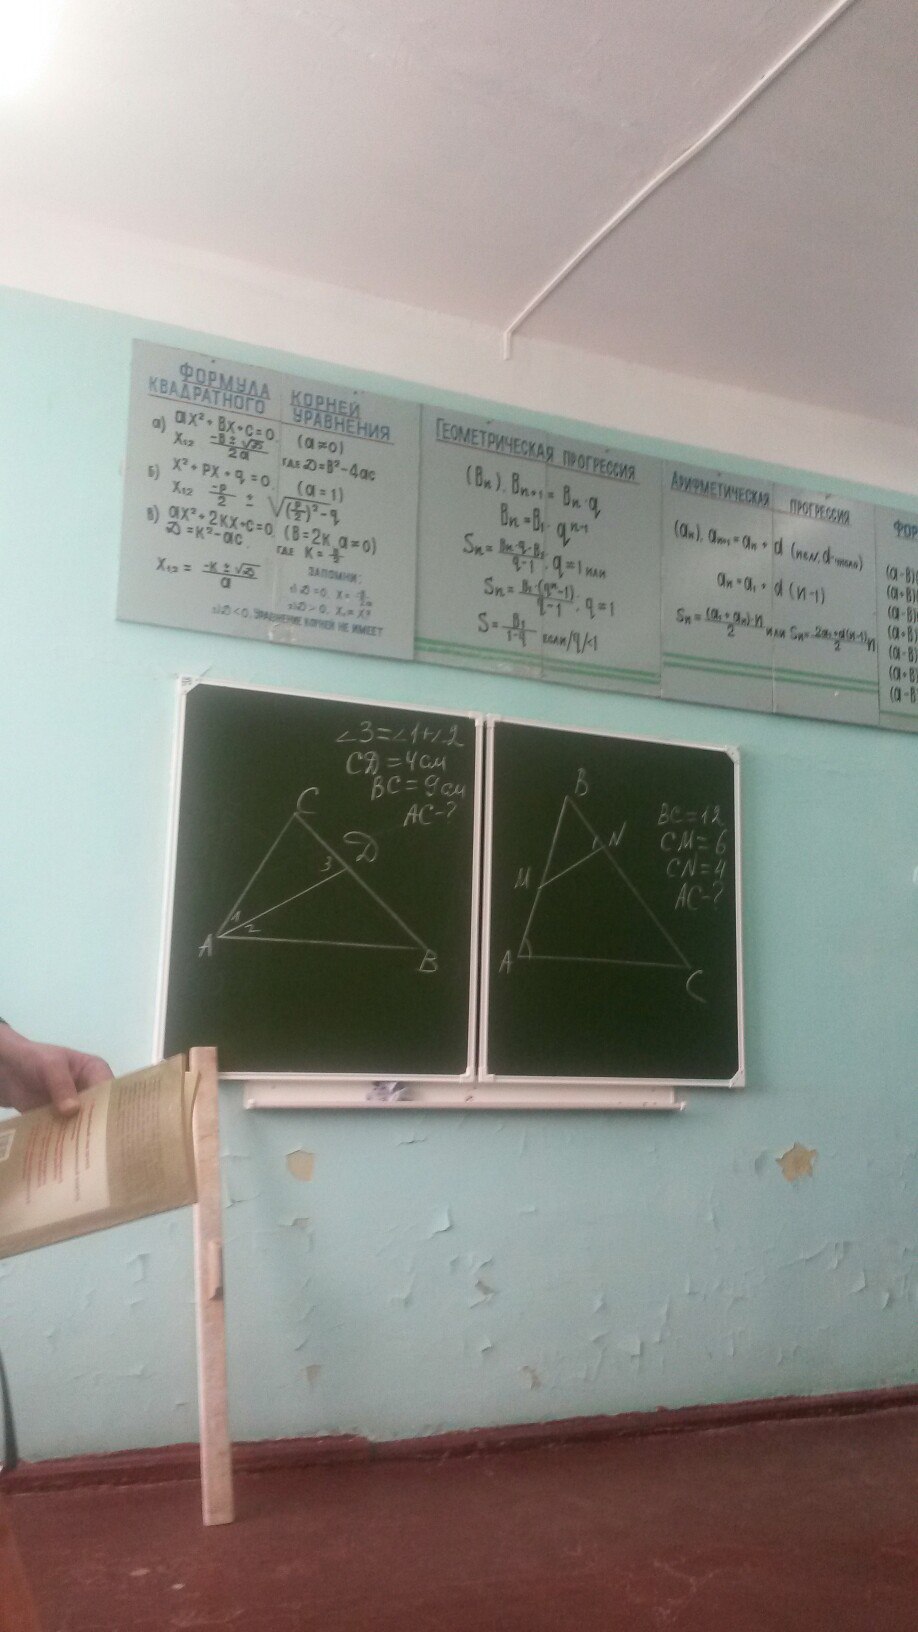 ФОРМУЛА КОРНЕЙ
КВАДРАТНОГО УРАВНЕНИЯ
а) aX² + BX + C = 0 (a ≠ 0)
X₁,₂ = (-B ± √D)/2a ГДЕ D = B² - 4ac
б) X² + PX + q = 0 (a = 1)
X₁,₂ -P/2 ± √((P/2)² - q)
в) aX² + 2KX + C = 0 (B = 2K, a ≠ 0)
D = K² - ac ГДЕ K = B/2
X₁,₂ = (-K ± √D)/a
ЗАПОМНИ:
D < 0. УРАВНЕНИЕ КОРНЕЙ НЕ ИМЕЕТ
ГЕОМЕТРИЧЕСКАЯ ПРОГРЕССИЯ
(Bn). Bn+1 = Bn · q
Bn = B₁ · qⁿ⁻¹
Sn = (Bn·q - B₁)/(q-1), q ≠ 1 ИЛИ
Sn = B₁·(qⁿ-1)/(q-1), q ≠ 1
S = B₁/(1-q) ЕСЛИ /q/<1
АРИФМЕТИЧЕСКАЯ ПРОГРЕССИЯ
(an). an+1 = an + d
an = a₁ + d (n-1)
Sn = (a₁ + an)·n/2 ИЛИ Sn = (2a₁ + d(n-1))/2 n
ФОР
∠3=∠1+∠2
CD = 4 см
BC = 9 см
AC - ?
C
D
3
1
2
A
B
BC = 12
CM = 6
CN = 4
AC - ?
B
N
M
A
C